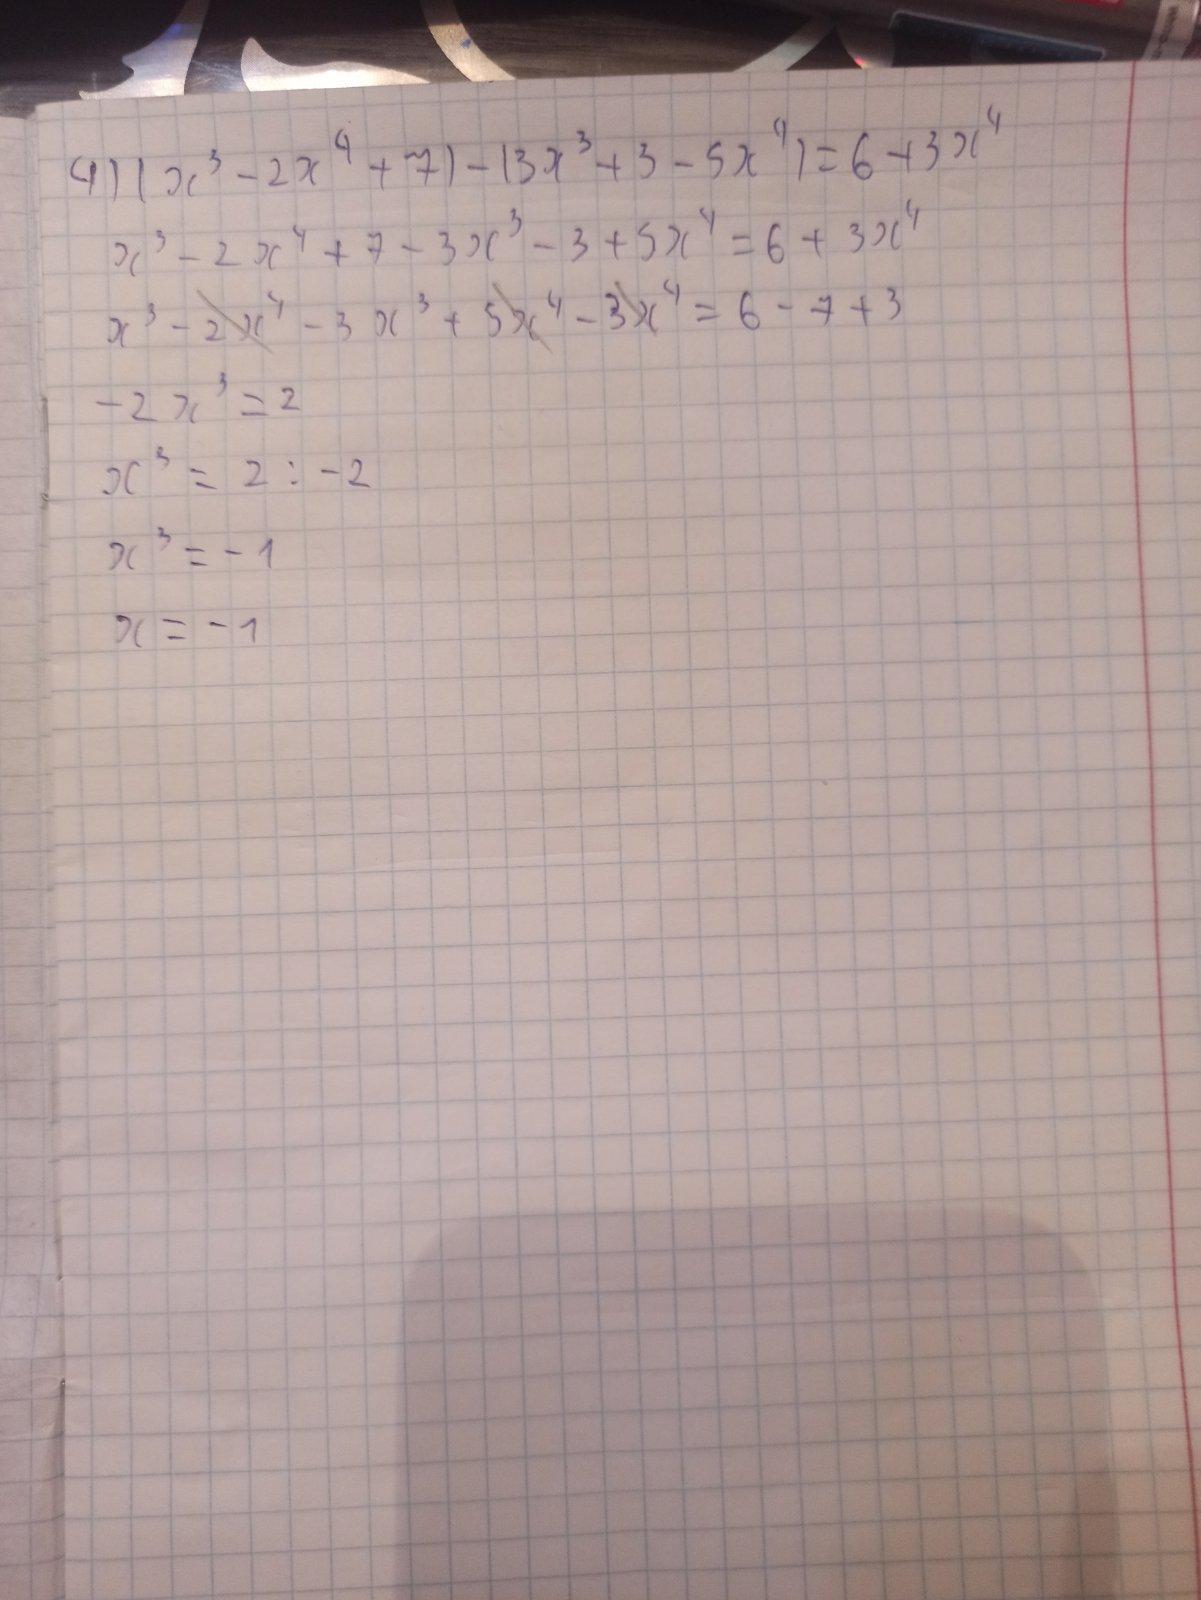 4) (x³ - 2x⁴ + 7) - (3x³ + 3 - 5x⁴) = 6 + 3x⁴
x³ - 2x⁴ + 7 - 3x³ - 3 + 5x⁴ = 6 + 3x⁴
x³ - 2x⁴ - 3x³ + 5x⁴ - 3x⁴ = 6 - 7 + 3
-2x³ = 2
x³ = 2 : -2
x³ = -1
x = -1